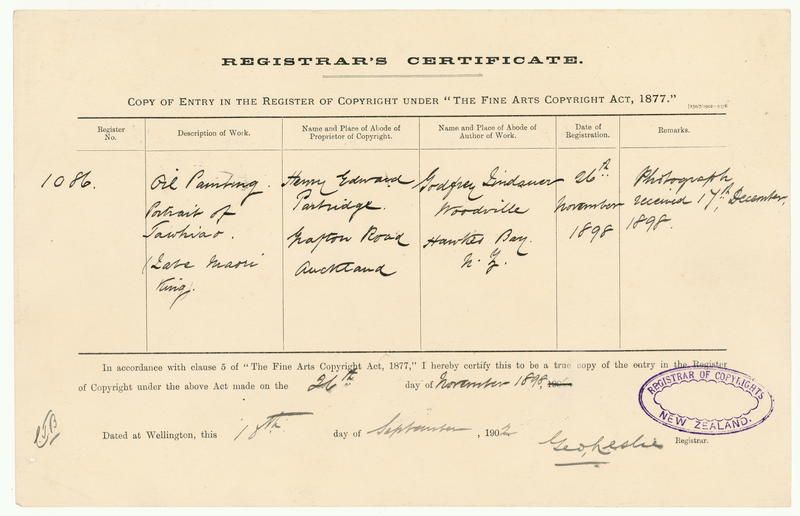 REGISTRAR'S CERTIFICATE.
COPY OF ENTRY IN THE REGISTER OF COPYRIGHT UNDER "THE FINE ARTS COPYRIGHT ACT, 1877."
Register No.
Description of Work.
Name and Place of Abode of Proprietor of Copyright.
Name and Place of Abode of Author of Work.
Date of Registration.
Remarks.
1086.
Oil Painting.
Portrait of
Tawhiao.
(Late Maori
King).
Henry Edward
Partridge.
Grafton Road
Auckland
Godfrey Lindauer
Woodville
Hawkes Bay.
N. Z.
26th
November
1898
Photograph
received 17th December,
1898.
In accordance with clause 5 of "The Fine Arts Copyright Act, 1877," I hereby certify this to be a true copy of the entry in the Register
of Copyright under the above Act made on the 26th day of November 1898,
Dated at Wellington, this 18th day of September, 1902
Geo. Leslie
Registrar.
REGISTRAR OF COPYRIGHTS
NEW ZEALAND.